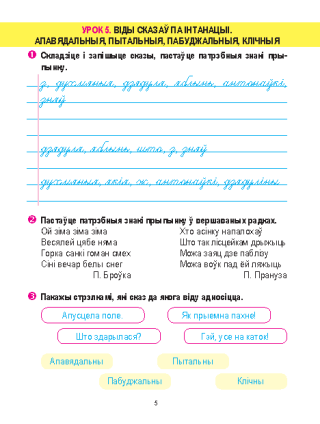 УРОК 5. ВІДЫ СКАЗАЎ ПА ІНТАНАЦЫІ.
АПАВЯДАЛЬНЫЯ, ПЫТАЛЬНЫЯ, ПАБУДЖАЛЬНЫЯ, КЛІЧНЫЯ
1 Складзіце і запішыце сказы, пастаўце патрэбныя знакі пры-
пынку.
з, духмяныя, дзядуля, яблынь, антонаўкі,
зняў
дзядуля, яблынь, што, з, зняў
духмяныя, якія, ж, антонаўкі, дзядуліны
2 Пастаўце патрэбныя знакі прыпынку ў вершаваных радках.
Ой зіма зіма зіма
Весялей цябе няма
Горка санкі гоман смех
Сіні вечар белы снег
П. Броўка
Хто асінку напалохаў
Што так лісцейкам дрыжыць
Можа заяц дзе паблізу
Можа воўк пад ёй ляжыць
П. Прануза
3 Пакажы стрэлкамі, які сказ да якога віду адносіцца.
Апусцела поле.
Як прыемна пахне!
Што здарылася?
Гэй, усе на каток!
Апавядальны
Пытальны
Пабуджальны
Клічны
5